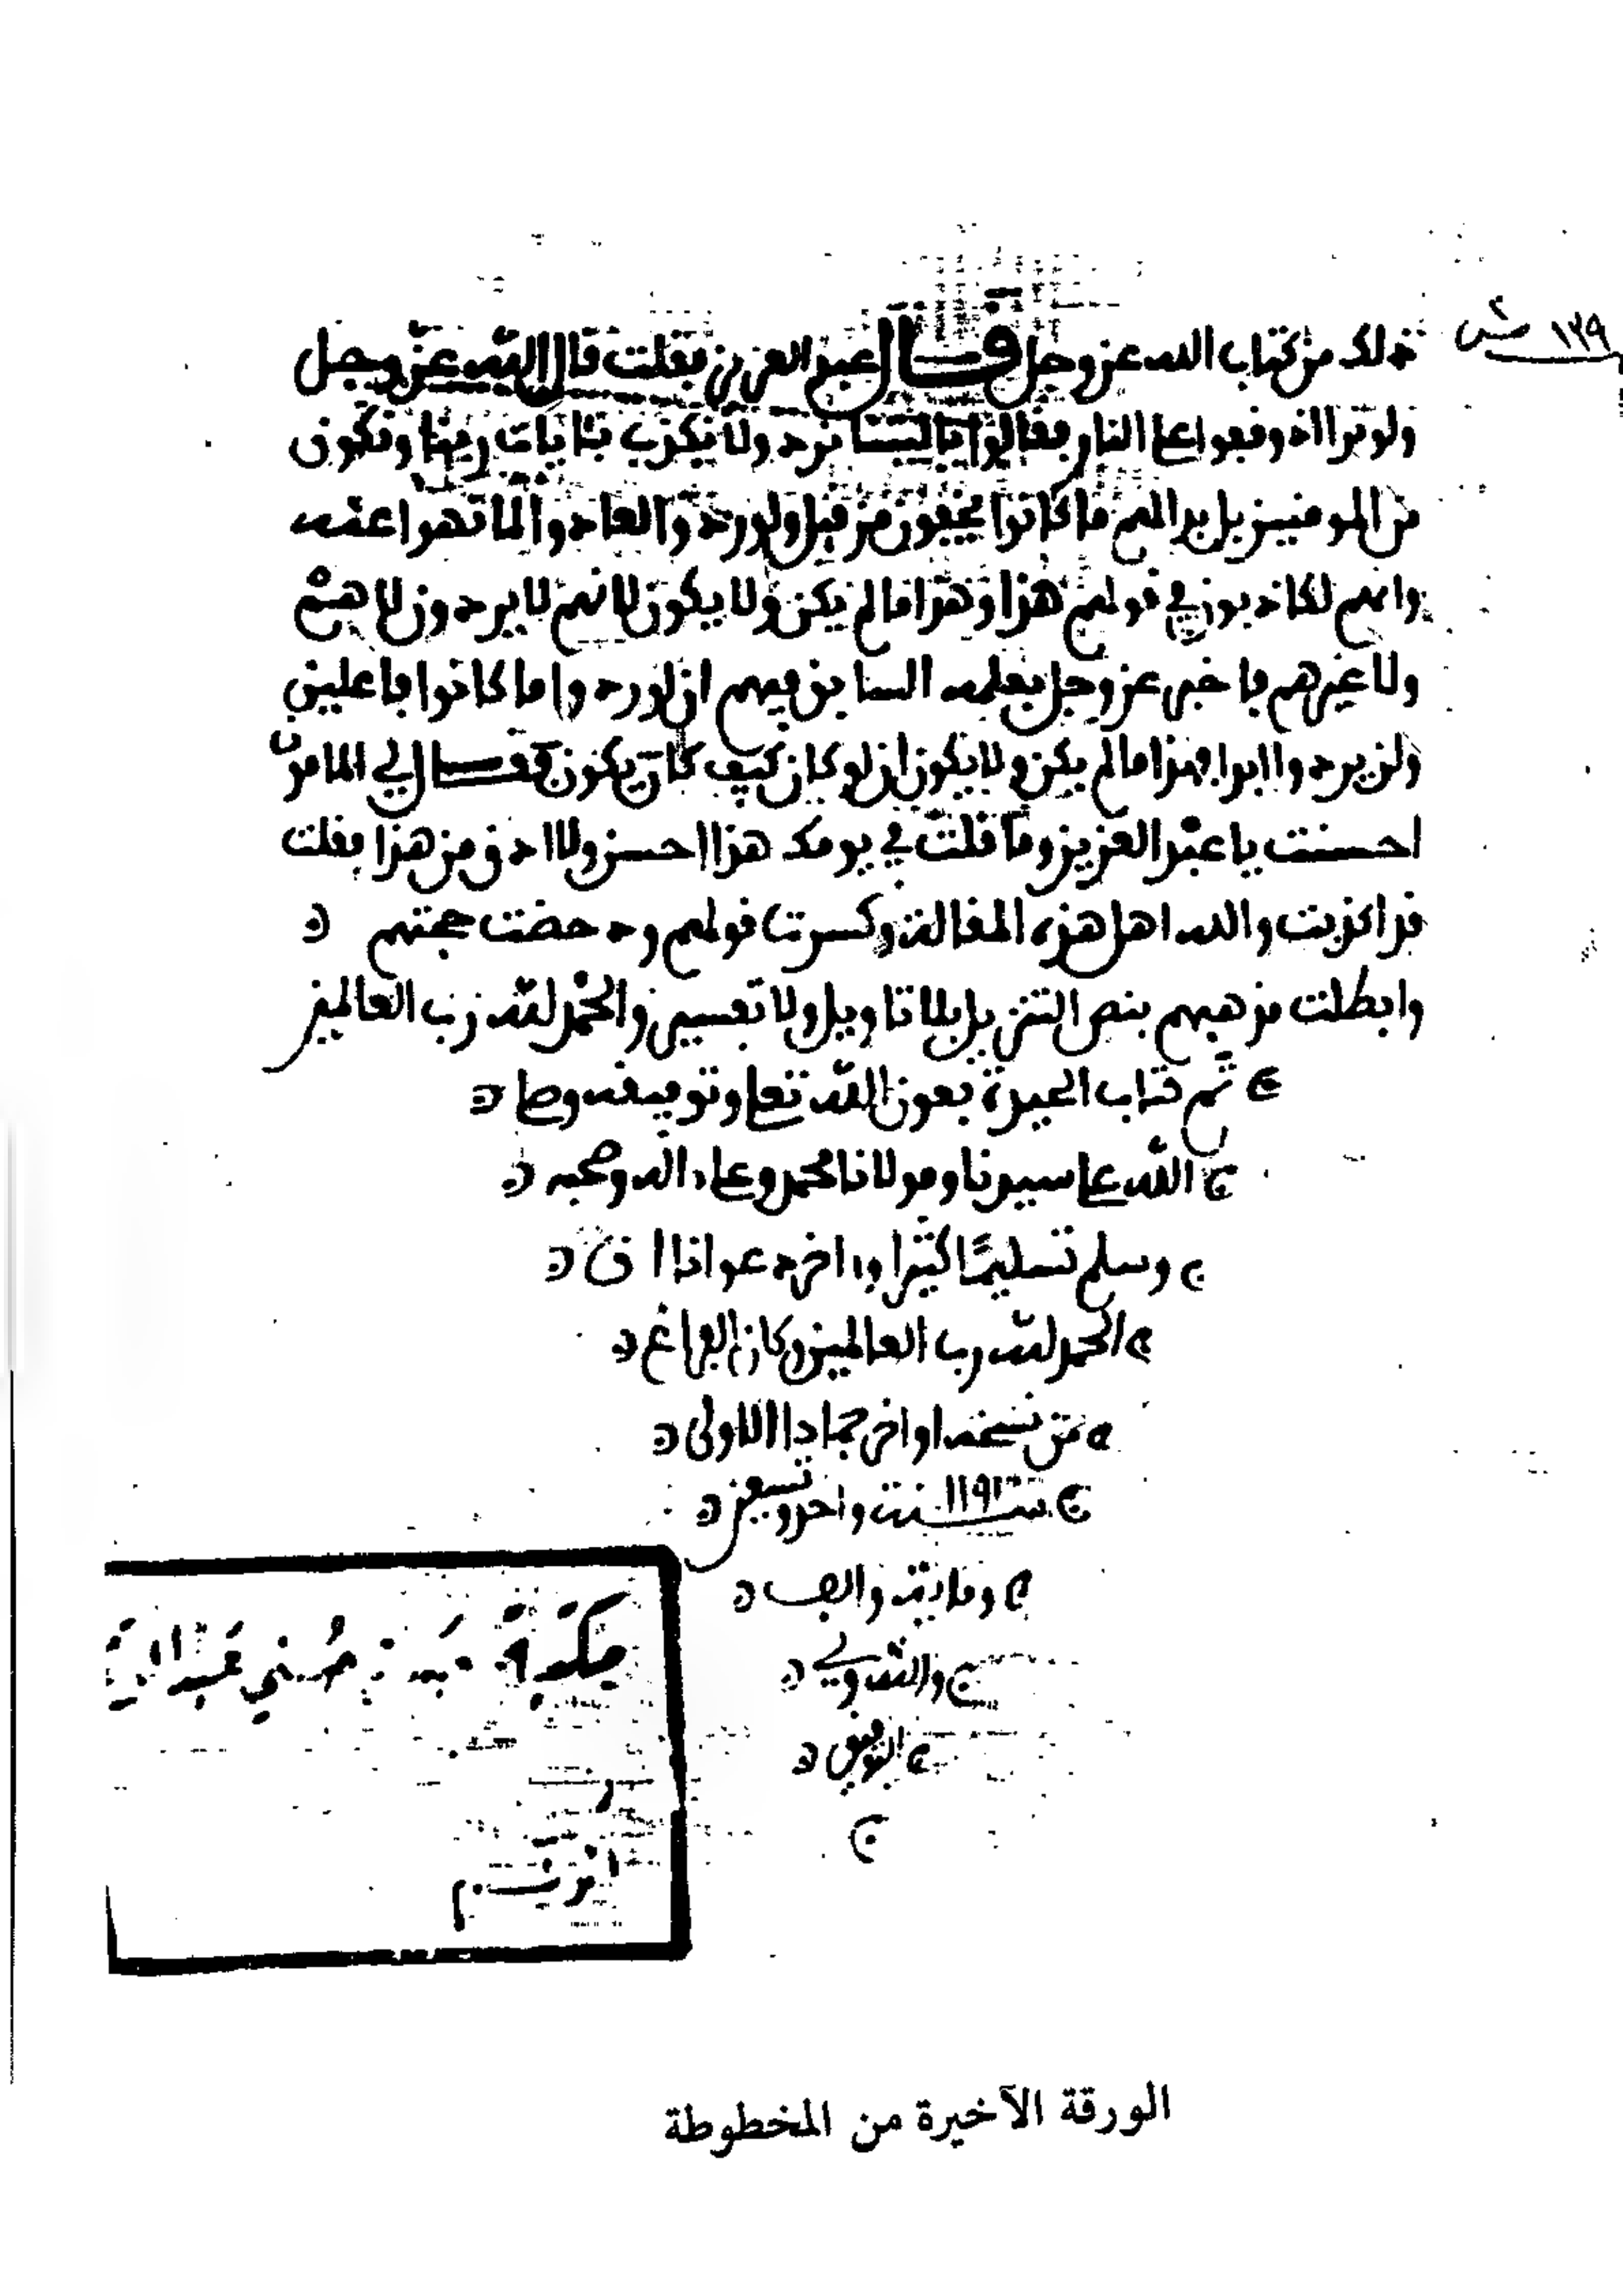 ١٣٩ ش
ذلك من كتاب الله عز وجل قال عبد العزيز فقلت قال الله عز وجل
ولو ترا اذ وقفوا على النار فقالوا يا ليتنا نرد ولا نكذب بئايات ربنا ونكون
من المومنين بل بدا لهم ما كانوا يخفون من قبل ولو ردوا لعادوا لما نهوا عنه
وانهم لكاذبون في قولهم هذا وهذا ما لم يكن ولا يكون لانهم لا يردون لا هم
ولا غيرهم فاخبر عز وجل بعلمه السابق فيهم ان لو ردوا ما كانوا فاعلين
ولن يردوا ابدا فهذا ما لم يكن ولا يكون ان لو كان كيف كان يكون فقال لي المامون
احسنت يا عبد العزيز وما قلت في يومك هذا احسن ولا ادق من هذا فقلت
قد اكذبت والله اهل هذه المقالة وكسرت قولهم ودحضت حجتهم
وابطلت مذهبهم بنص التنزيل بلا تاويل ولا تفسير والحمد لله رب العالمين
تم كتاب الحيدة بعون الله تعلى وتوفيقه وصلى
الله على سيدنا ومولانا محمد وعلى ءاله وصحبه
وسلم تسليمًا كثيرا وءاخر دعوانا ان
الحمد لله رب العالمين وكان الفراغ
من نسخه اواخر جمادا الاولى
سنة ١١٩١ سنت واحد وتسعين
ومايتة والف
والله ولي
التوفيق
مكتبة حسني عبد
تونس
الورقة الآخيرة من المخطوطة